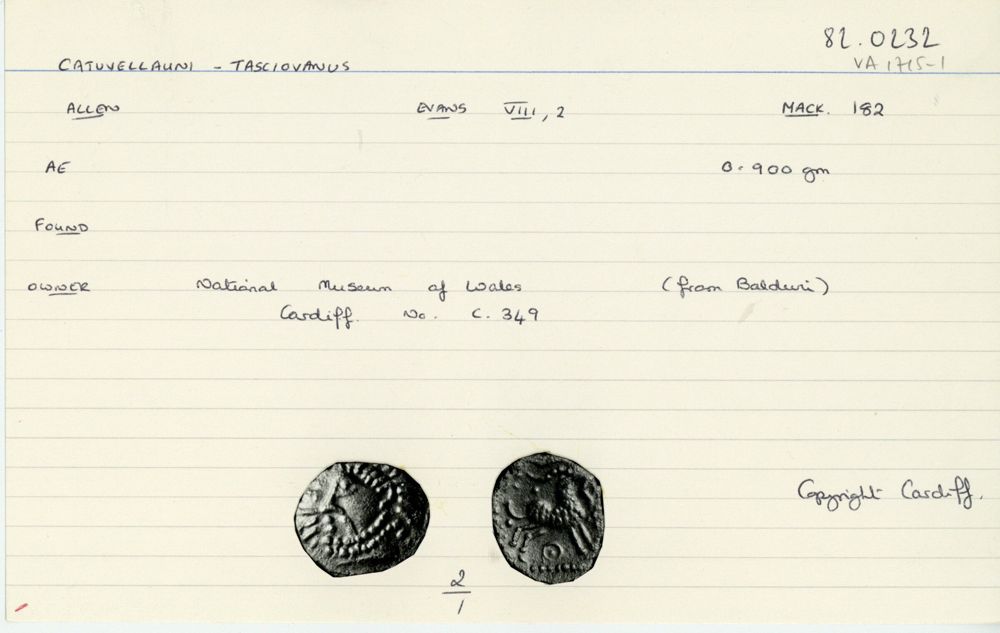 82.0232
VA 1715-1
CATUVELLAUNI - TASCIOVANUS
ALLEN EVANS VIII, 2 MACK. 182
AE 0.900 gm
FOUND
OWNER National Museum of Wales (from Balduri)
Cardiff. No. C. 349
Copyright Cardiff.
2
1